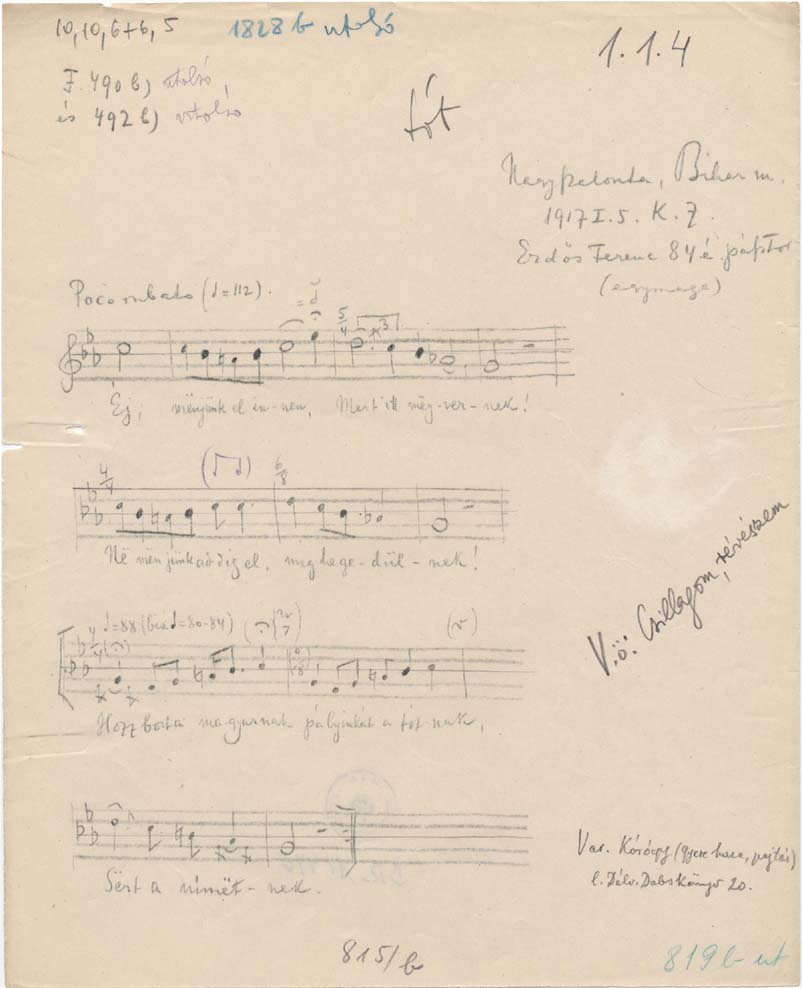 10, 10, 6+6, 5
1828 b utolsó
1.1.4
F. 490 b) utolsó,
és 492 b) utolsó
tót
Nagyszalonta, Bihar m.
1917 I. 5. K. Z.
Erdős Ferenc 84 é. pásztor
(egymaga)
Poco rubato (♩=112).
5/4
3
Ej, mënjünk el in-nen, Mert itt mëg-ver-nek!
4/4
6/8
Në mënjünk addig el, mig hege-dül-nek!
4/4 ♩=88
(v)
Hozz bort a ma-gyarnak pályinkát a tót-nak,
Sërt a nímët-nek.
V.ö: Csillagom, révészem
Var. Kórógy (gyere haza, pajtás)
l. Délv. Dalos Könyv 20.
815/b
819 b ut